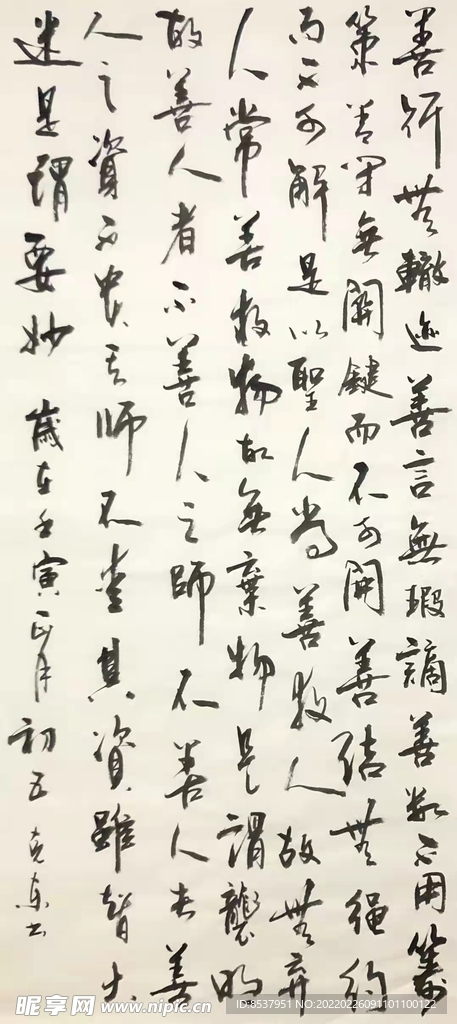 善行無轍迹善言無瑕謫善數不用籌
策善閉無關鍵而不可開善結無繩約
而不可解是以聖人常善救人故無弃
人常善救物故無棄物是謂襲明
故善人者不善人之師不善人者善
人之資不貴其師不愛其資雖智大
迷是謂要妙 歲在壬寅正月初五 克东书
昵享网 www.nipic.cn
ID:8537951 NO:20220226091101100122